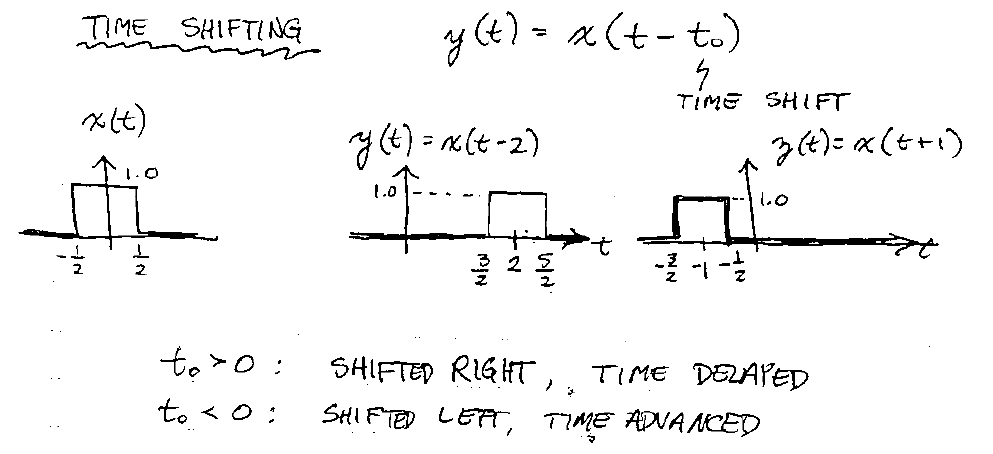 TIME SHIFTING
y(t) = x(t - t₀)
TIME SHIFT
x(t)
1.0
-1/2 1/2
y(t) = x(t-2)
1.0
3/2 2 5/2
t
z(t) = x(t+1)
1.0
-3/2 -1 -1/2
t
t₀ > 0 : SHIFTED RIGHT, TIME DELAYED
t₀ < 0 : SHIFTED LEFT, TIME ADVANCED